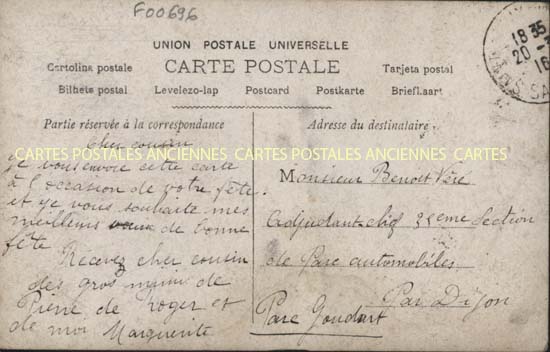 F00696
18 35
20
16
UNION POSTALE UNIVERSELLE
CARTE POSTALE
Cartolina postale
Tarjeta postal
Bilhets postal Levelezo-lap Postcard Postkarte Briefl.aart
Partie réservée à la correspondance
Adresse du destinataire
CARTES POSTALES ANCIENNES CARTES POSTALES ANCIENNES CARTES
Cher cousin
je vous envoie cette carte
à l'occasion de votre fête
et je vous souhaite mes
meilleurs vœux de bonne
fête
Recevez cher cousin
des gros mimi de
Pierre de Roger et
de moi Marguerite
Monsieur Benoit
Adjudant chef eme Section
de Parc automobiles
Par Dijon
Parc Goudart